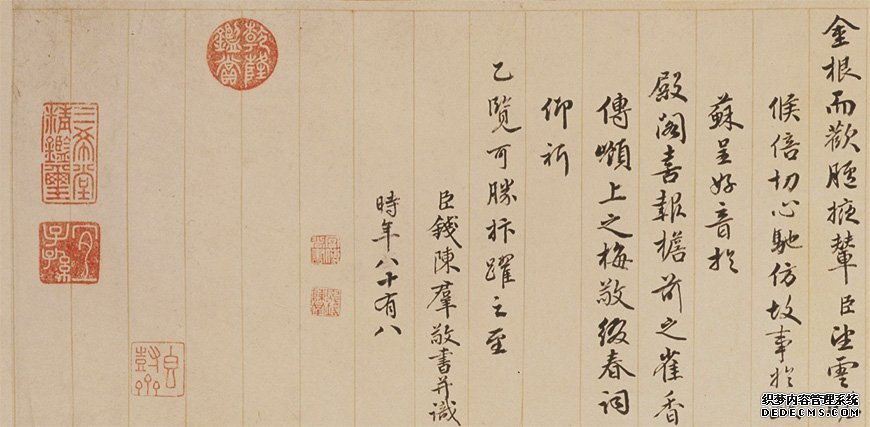 金根而歡臚掖輦臣望雲
候倍切心馳仿故事於
蘇呈好音於
殿閣喜報檐前之雀香
傳嶺上之梅敬綴春詞
仰祈
乙覽可勝抃躍之至
臣錢陳羣敬書并識
時年八十有八
乾隆鑑賞
三希堂精鑑璽
宜子孫
织梦内容管理系统
DEDECMS.COM